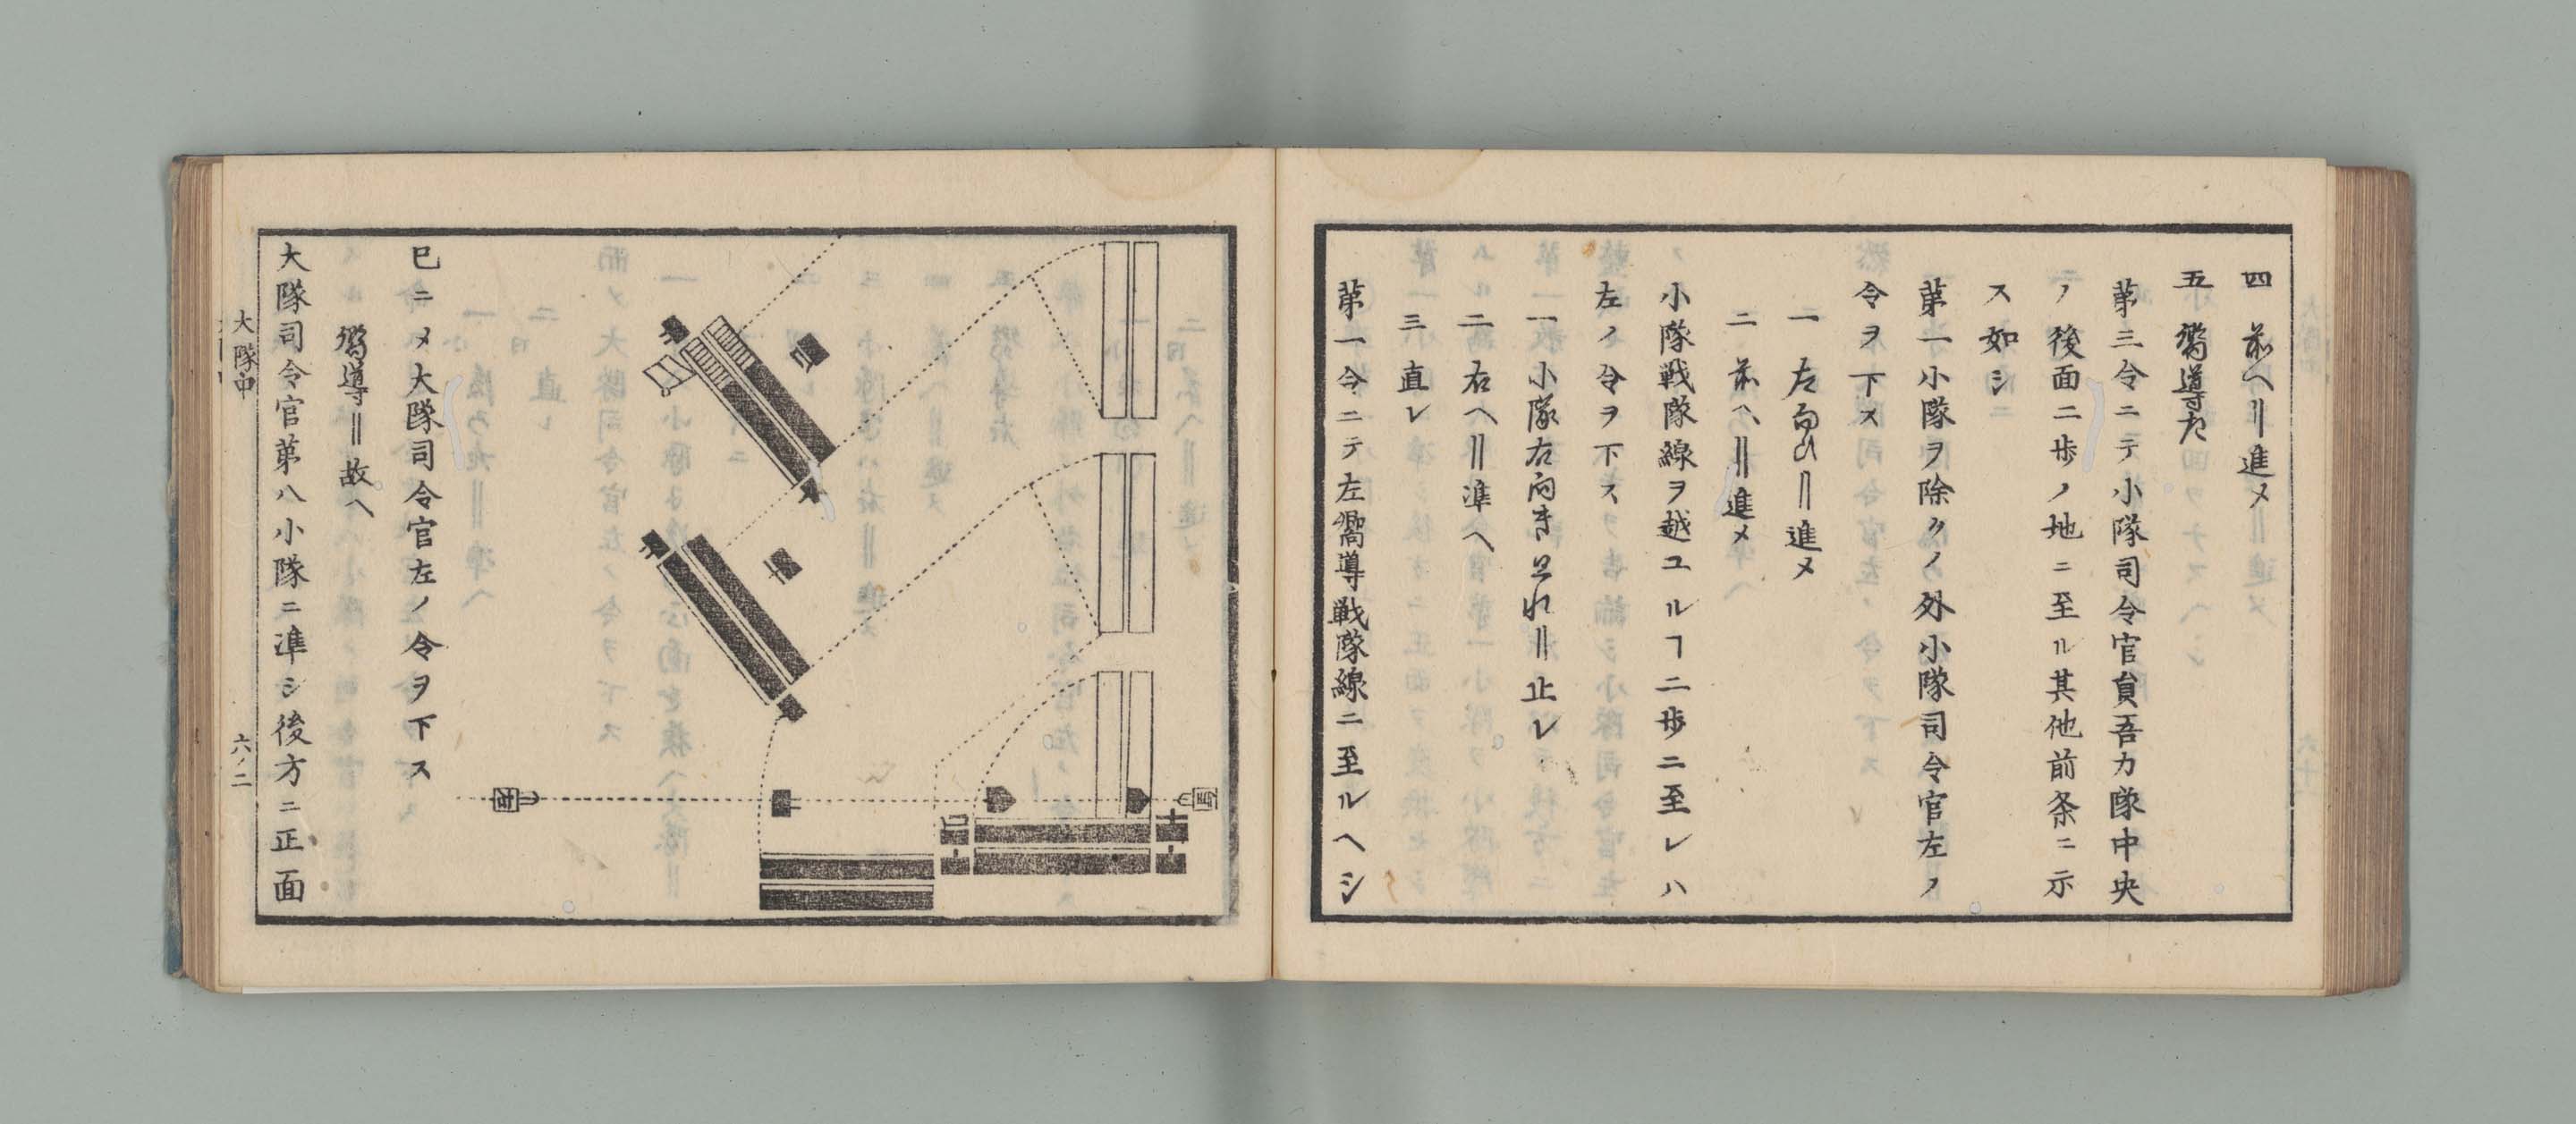 四 前ヘ‖進メ
五 嚮導左
第三令ニテ小隊司令官貟吾カ隊中央
ノ後面二歩ノ地ニ至ル其他前条ニ示
ス如シ
第一小隊ヲ除クノ外小隊司令官左ノ
令ヲ下ス
一 左向ひ‖進メ
二 前ヘ‖進メ
小隊戦隊線ヲ越ユルヿ二歩ニ至レハ
左ノ令ヲ下ス
一 小隊右向き止れ‖止レ
二 右ヘ‖準ヘ
三 直レ
第一令ニテ左嚮導戦隊線ニ至ルヘシ
馬
巳ニメ大隊司令官左ノ令ヲ下ス
嚮導‖故ヘ
大隊司令官第八小隊ニ準シ後方ニ正面
大隊中
六ノ二